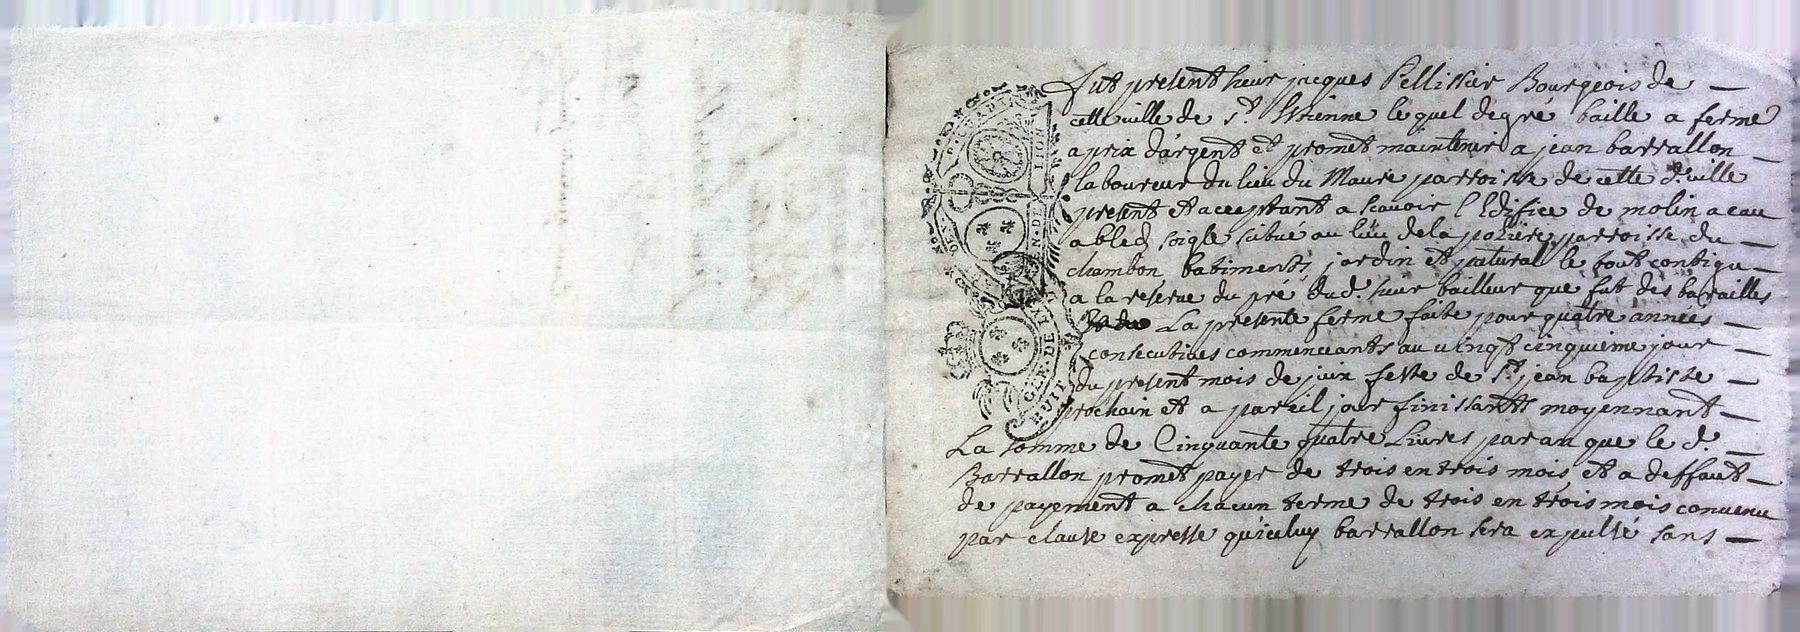 Fut present sieur jacques Pellissier Bourgeois de
cette ville de St. Estienne le quel de gré baille a ferme
a prix d'argent et promet maintenir a jean barrallon
laboureur du lieu du Maure parroisse de cette d. ville
present et acceptant a scavoir l'Edifice de molin a eau
a bled soigle scitué au lieu de la parroisse du
chambon batiments, jardin et patural le tout contigu
a la reserve du pré dud. sieur bailleur que fut des barailles
La presente ferme faite pour quatre années
consecutives commenceants au vingt cinquieme jour
du present mois de juin feste de St. jean baptiste
prochain et a pareil jour finissants moyennant
La somme de Cinquante quatre Livres par an que le d.
Barrallon promet payer de trois en trois mois et a deffaut
de payement a chacun terme de trois en trois mois convenu
par clause expresse qu'iceluy barrallon sera expulsé sans
GEN. DE LION
HUIT